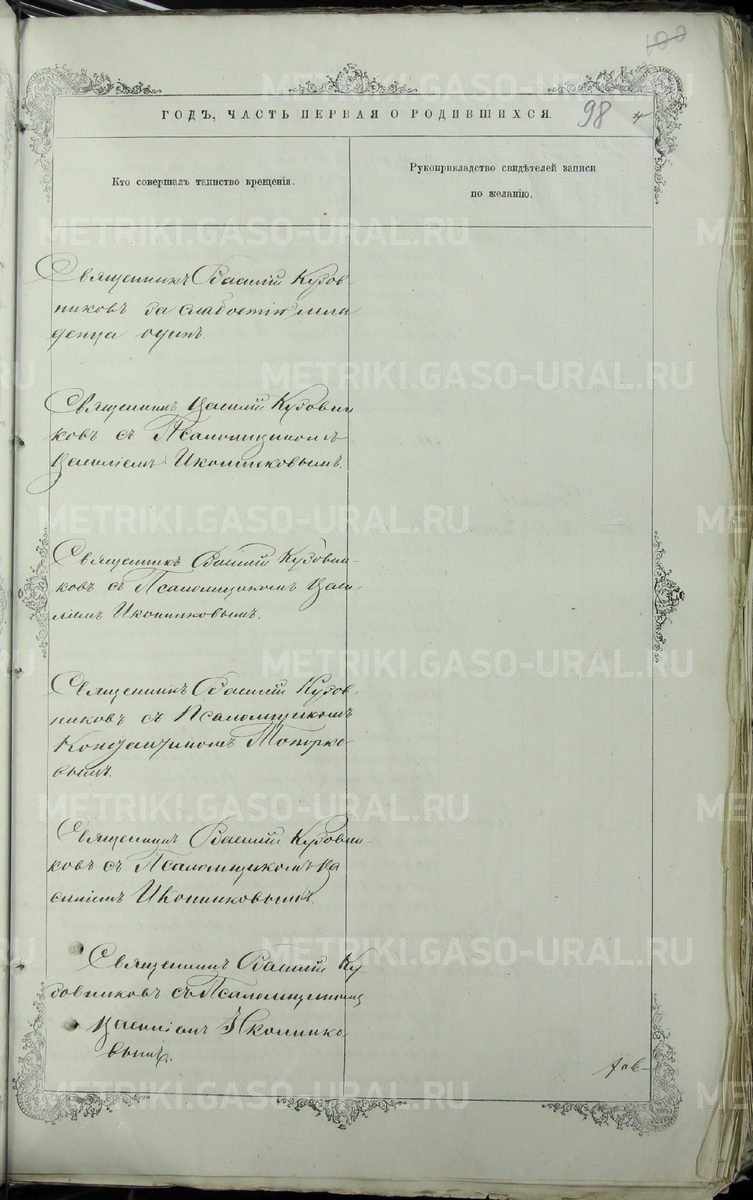 100
ГОДЪ, ЧАСТЬ ПЕРВАЯ О РОДИВШИХСЯ. 98
Кто совершалъ таинство крещенія.
Рукоприкладство свидѣтелей записи
по желанію.
Священникъ Василій Кузов-
никовъ за слабостію мла
денца одинъ.
Священникъ Василій Кузовни
ковъ съ Псаломщикомъ
Василіемъ Иконниковымъ.
Священникъ Василій Кузовни-
ковъ съ Псаломщикомъ Васи-
ліемъ Иконниковымъ.
Священникъ Василій Кузов-
никовъ съ Псаломщикомъ
Топорко-
вымъ.
Священникъ Василій Кузовни
ковъ съ Псаломщикомъ Ва
силіемъ Иконниковымъ.
Священникъ Василій Ку-
зовниковъ съ Псаломщикомъ
Василіемъ Иконнико
вымъ.
METRIKI.GASO-URAL.RU